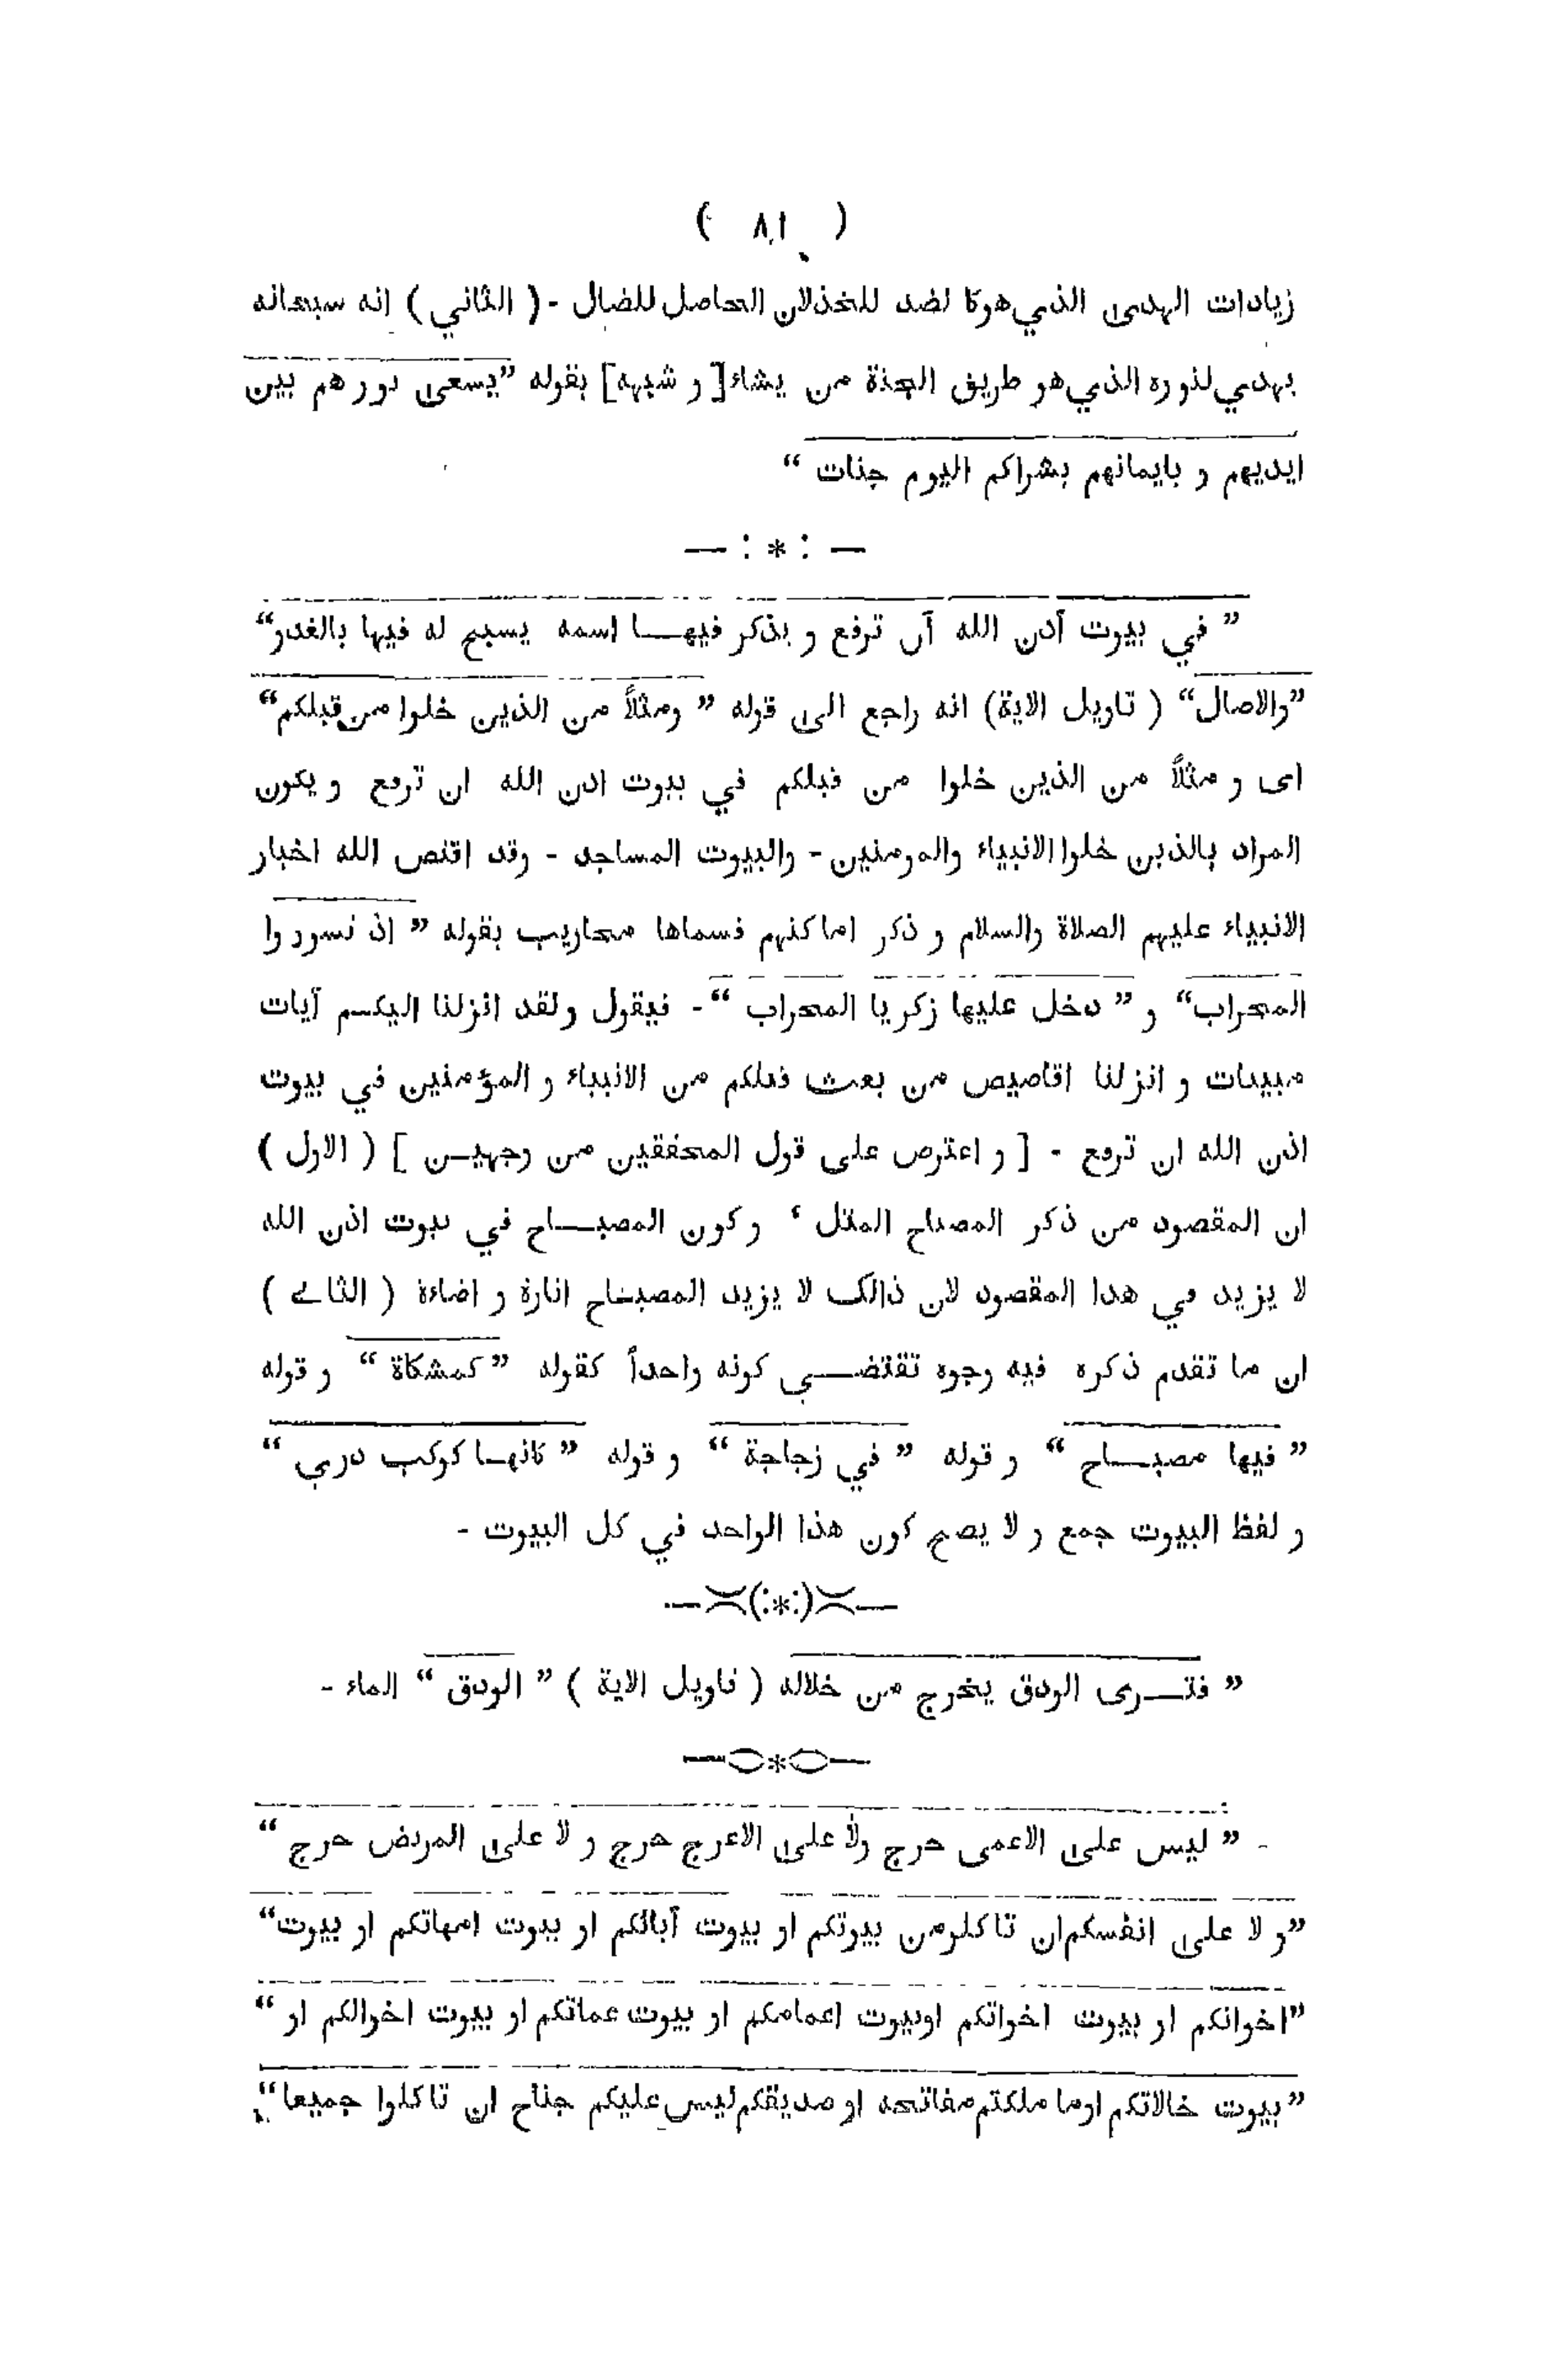 ( ٨١ )
زيادات الهدى الذي هو كا لضد للخذلان الحاصل للضال - ( الثاني ) انه سبحانه
يهدي لنوره الذي هو طريق الجنة من يشاء [ و شبهه ] بقوله ” يسعى نور هم بين
ايديهم و بايمانهم بشراكم اليوم جنات “
— : * : —
” في بيوت أذن الله أن ترفع و يذكر فيهـــا اسمه يسبح له فيها بالغدو “
” والاصال “ ( تاويل الاية ) انه راجع الى قوله ” ومثلاً من الذين خلوا من قبلكم “
اى و مثلاً من الذين خلوا من قبلكم في بيوت اذن الله ان ترفع و يكون
المراد بالذين خلوا الانبياء والمومنين - والبيوت المساجد - وقد اقتص الله اخبار
الانبياء عليهم الصلاة والسلام و ذكر اماكنهم فسماها محاريب بقوله ” اذ تسورو ا
المحراب “ و ” دخل عليها زكريا المحراب “ - فيقول ولقد انزلنا اليكـم آيات
مبينات و انزلنا اقاصيص من بعث قبلكم من الانبياء و المؤمنين في بيوت
اذن الله ان ترفع - [ و اعترض على قول المحققين من وجهيـن ] ( الاول )
ان المقصود من ذكر المصباح المثل ‘ و كون المصبـــاح في بيوت اذن الله
لا يزيد في هذا المقصود لان ذالك لا يزيد المصبـاح انارة و اضاءة ( الثانے )
ان ما تقدم ذكره فيه وجوه تقتضـــي كونه واحداً كقوله ” كمشكاة “ و قوله
” فيها مصبـــاح “ و قوله ” في زجاجة “ و قوله ” كانهـا كوكب دري “
و لفظ البيوت جمع و لا يصح كون هذا الواحد في كل البيوت -
—(:*:)—
” فتـــرى الودق يخرج من خلاله ( تاويل الاية ) ” الودق “ الماء -
—*—
- ” ليس على الاعمى حرج ولا على الاعرج حرج و لا على المريض حرج “
” و لا على انفسكم ان تاكلو من بيوتكم او بيوت آبائكم او بيوت امهاتكم او بيوت “
” اخوانكم او بيوت اخواتكم او بيوت اعمامكم او بيوت عماتكم او بيوت اخوالكم او “
” بيوت خالاتكم او ما ملكتم مفاتحه او صديقكم ليس عليكم جناح ان تاكلوا جميعا “